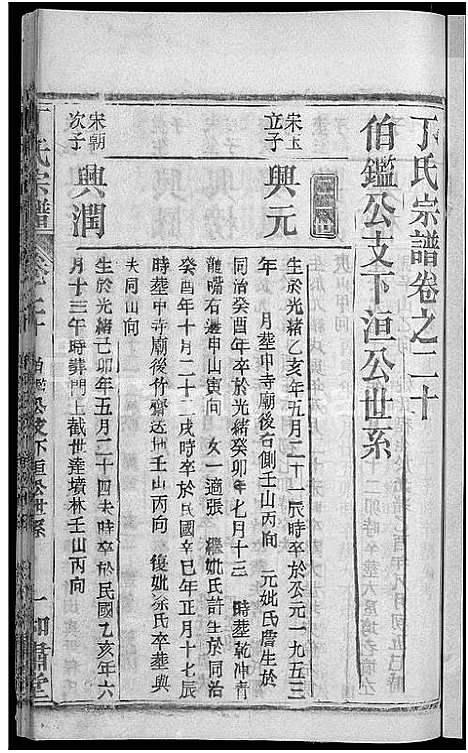 丁氏宗譜卷之二十
伯鑑公支下洹公世系
宋玉
立子
興元
生於光緒乙亥年五月二十一辰時卒於公元一九五三
年 月葬中寺廟後右側壬山丙向 元妣氏詹生於
同治癸酉年卒於光緒癸卯年七月十三 時葬乾冲青
龍嘴右邊申山寅向 女一適張 繼妣氏計生於同治
癸酉年十月二十一戌時卒於民國辛巳年正月十七辰
時葬中寺廟後竹齋送地壬山丙向 復妣徐氏卒葬與
夫同山向
宋朝
次子
興潤
生於光緒己卯年五月二十四未時卒於民國乙亥年六
月十三午時葬門上截世達墳林壬山丙向
丁氏宗譜
卷之二十
伯鑑公支下洹公世系
一